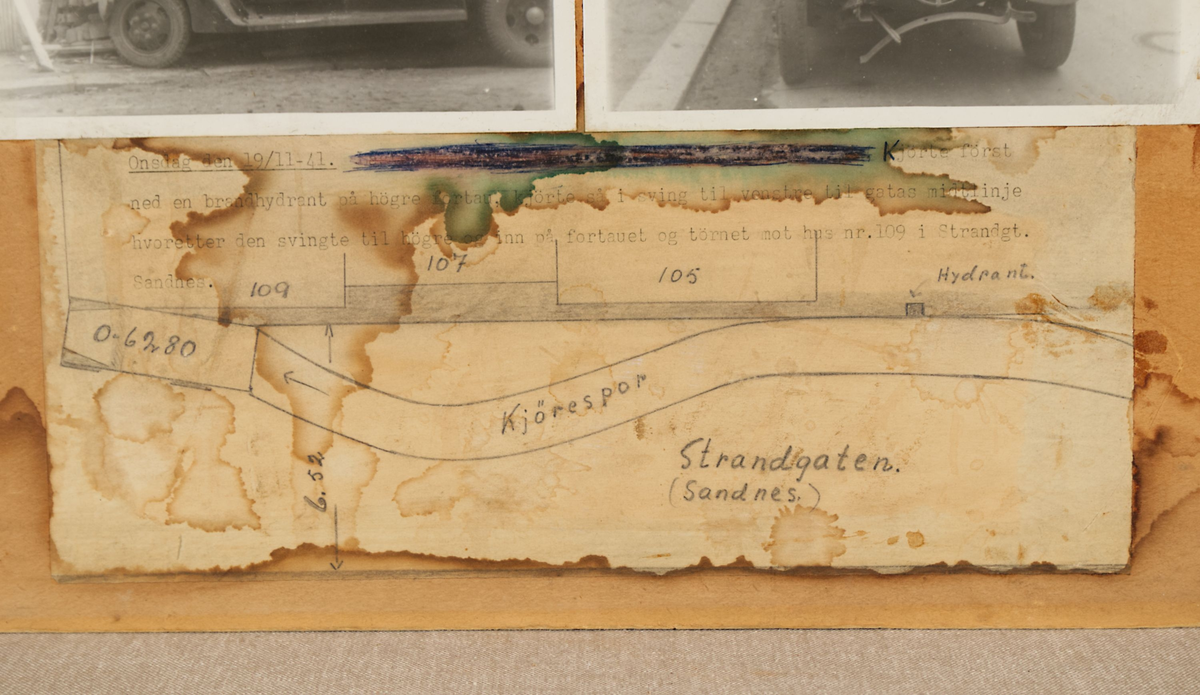 Onsdag den 19/11-41. Kjörte först
ned en brandhydrant på högre fortau. Kjörte så i sving til venstre til gatas midtlinje
hvoretter den svingte til högre inn på fortauet og törnet mot hus nr.109 i Strandgt.
Sandnes.
109
107
105
Hydrant.
O-6280
Kjörespor
6.52
Strandgaten.
(Sandnes.)